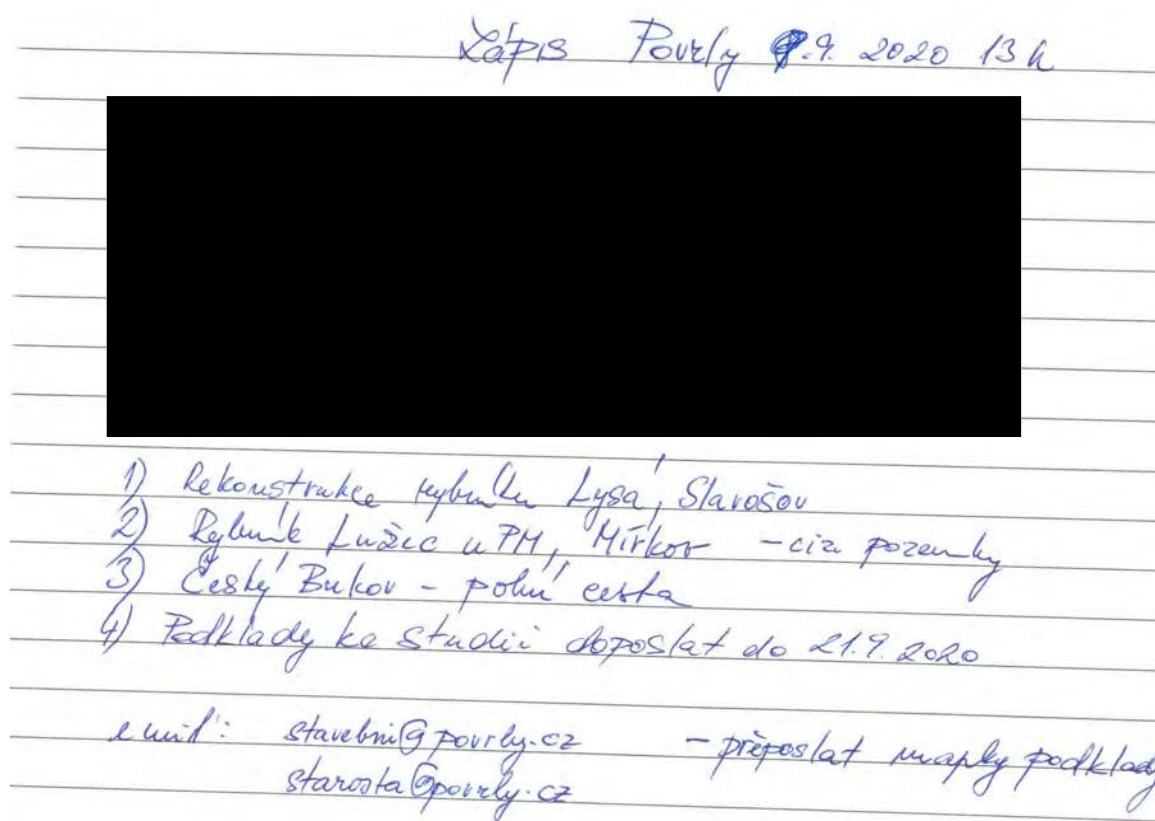 Zápis Povrly 9.9. 2020 13 h
1) Rekonstrukce rybníku Lysá, Slavošov
2) Rybník Lužec u PM, Mírkov - cizí pozemky
3) Český Bukov - polní cesta
4) Podklady ke studii doposlat do 21.9. 2020
email: stavebni@povrly.cz - přeposlat mapky podklady
starosta@povrly.cz